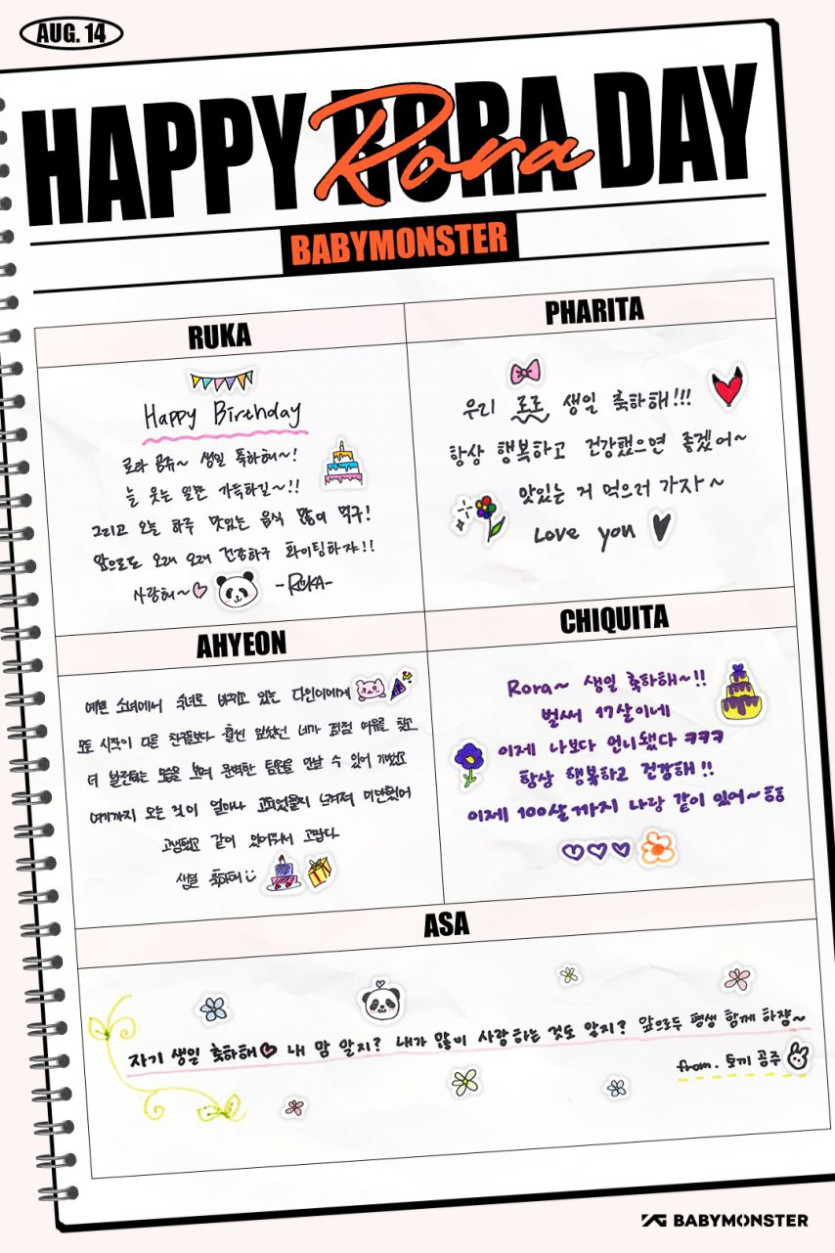 AUG. 14
HAPPY RORA DAY
Rora
BABYMONSTER
RUKA
Happy Birthday
로라 공쥬~ 생일 축하해~!
늘 웃는 일만 가득하길~!!
그리고 오늘 하루 맛있는 음식 많이 먹구!
앞으로도 오래 오래 건강하구 화이팅하쟈!!
사랑해~
-RUKA-
PHARITA
우리 로로 생일 축하해!!!
항상 행복하고 건강했으면 좋겠어~
맛있는 거 먹으러 가자~
Love you
AHYEON
예쁜 소녀에서 숙녀로 바뀌고 있는 다인이에게
모든 시작이 다른 친구들보다 훨씬 앞섰던 네가 점점 여유를 찾고
더 발전하는 모습을 보며 완벽한 팀원을 만날 수 있어 기뻤고
여기까지 오는 것이 얼마나 고되었을지 느껴져 미안했어
고생했고 같이 있어줘서 고맙다
생일 축하해
CHIQUITA
Rora~ 생일 축하해~!!
벌써 17살이네
이제 나보다 언니됐다 ㅋㅋㅋ
항상 행복하고 건강해!!
이제 100살까지 나랑 같이 있어~ㅎㅎ
ASA
자기 생일 축하해 내 맘 알지? 내가 많이 사랑하는 것도 알지? 앞으로두 평생 함께 하쟝~
from. 토끼 공주
YG BABYMONSTER